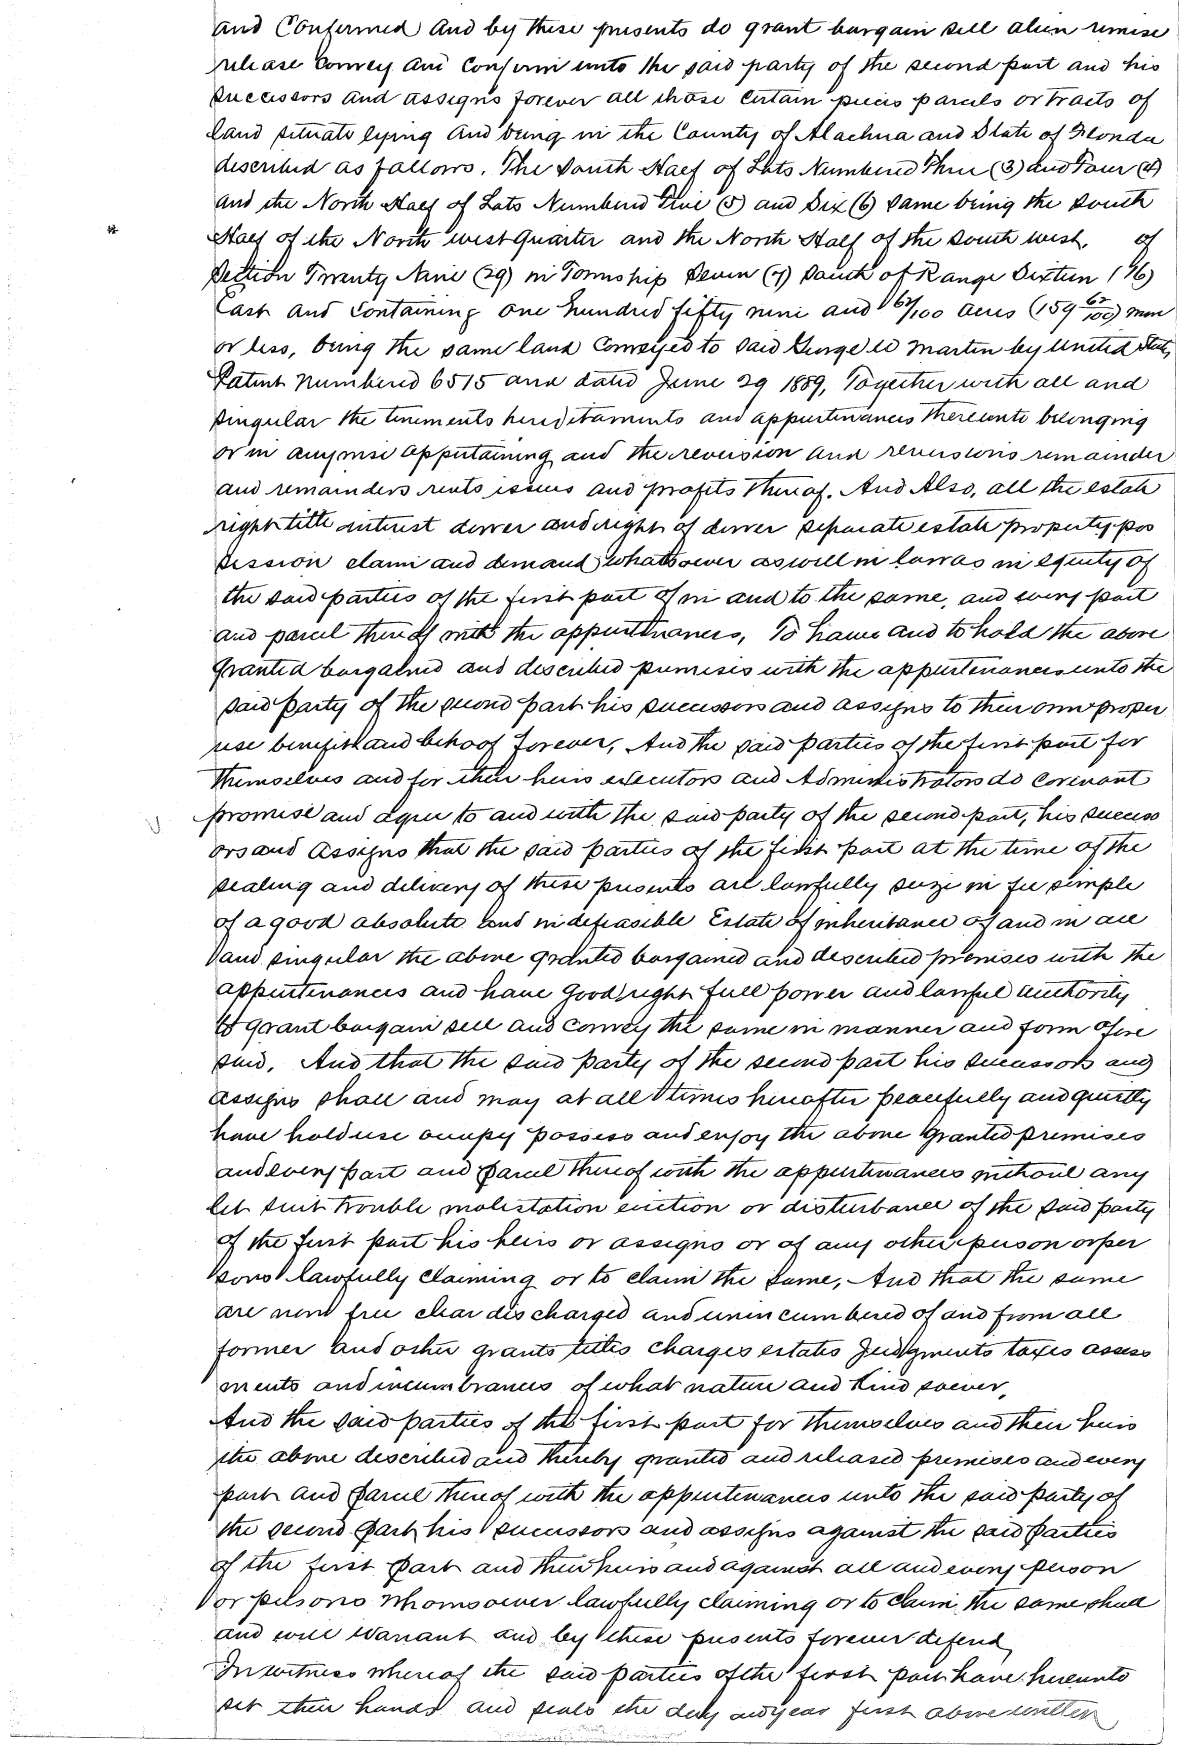 and Confirmed and by these presents do grant bargain sell alien remise
release convey and confirm unto the said party of the second part and his
successors and assigns forever all those certain pieces parcels or tracts of
land situate lying and being in the County of Alachua and State of Florida
described as follows. The South Half of Lots Numbered Three (3) and Four (4)
and the North Half of Lots Numbered Five (5) and Six (6) same being the South
Half of the North west Quarter and the North Half of the South west, of
Section Twenty Nine (29) in Township Seven (7) South of Range Sixteen (16)
East and Containing one hundred fifty nine and 62/100 acres (159 62/100) more
or less, being the same land Conveyed to said George W Martin by United States
Patent Numbered 6515 and dated June 29 1889, Together with all and
singular the tenements hereditaments and appurtenances thereunto belonging
or in anywise appertaining and the reversion and reversions remainder
and remainders rents issues and profits thereof. And Also, all the estate
right title interest dower and right of dower separate estate property pos
session claim and demand whatsoever as well in law as in equity of
the said parties of the first part of in and to the same, and every part
and parcel thereof with the appurtenances, To have and to hold the above
granted bargained and described premises with the appurtenances unto the
said party of the second part his successors and assigns to their own proper
use benefit and behoof forever, And the said parties of the first part for
themselves and for their heirs executors and Administrators do covenant
promise and agree to and with the said party of the second part, his success
ors and assigns that the said parties of the first part at the time of the
sealing and delivery of these presents are lawfully seize in fee simple
of a good absolute and indefeasible Estate of inheritance of and in all
and singular the above granted bargained and described premises with the
appurtenances and have good right full power and lawful authority
to grant bargain sell and convey the same in manner and form afore
said. And that the said party of the second part his successors and
assigns shall and may at all times hereafter peacefully and quietly
have hold use occupy possess and enjoy the above granted premises
and every part and parcel thereof with the appurtenances without any
let suit trouble molestation eviction or disturbance of the said party
of the first part his heirs or assigns or of any other person or per
sons lawfully claiming or to claim the same, And that the same
are now free clear discharged and unincumbered of and from all
former and other grants titles charges estates Judgments taxes assess
ments and incumbrances of what nature and Kind soever,
And the said parties of the first part for themselves and their heirs
the above described and thereby granted and released premises and every
part and parcel thereof with the appurtenances unto the said party of
the second part his successors and assigns against the said parties
of the first part and their heirs and against all and every person
or persons whomsoever lawfully claiming or to claim the same shall
and will Warrant and by these presents forever defend,
In witness whereof the said parties of the first part have hereunto
set their hands and seals the day and year first above written